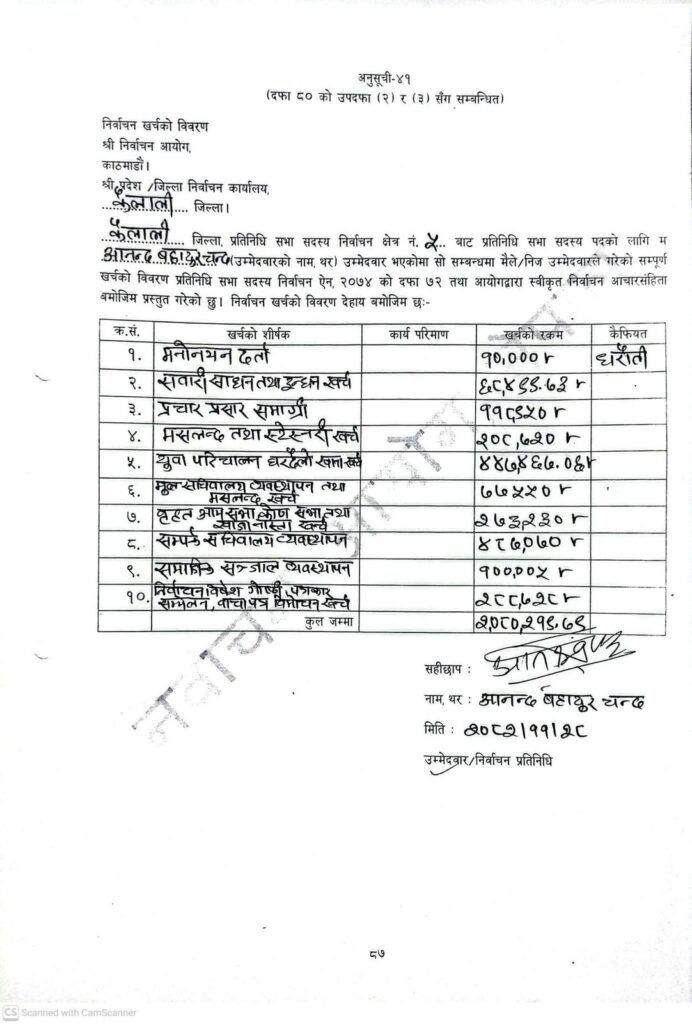 अनुसूची-४१
(दफा ८० को उपदफा (२) र (३) सँग सम्बन्धित)
निर्वाचन खर्चको विवरण
श्री निर्वाचन आयोग,
काठमाडौं।
श्री प्रदेश /जिल्ला निर्वाचन कार्यालय,
कैलाली जिल्ला।
कैलाली जिल्ला, प्रतिनिधि सभा सदस्य निर्वाचन क्षेत्र नं. ५ बाट प्रतिनिधि सभा सदस्य पदको लागि म
आनन्द बहादुर चन्द (उम्मेदवारको नाम, थर) उम्मेदवार भएकोमा सो सम्बन्धमा मैले/निज उम्मेदवारले गरेको सम्पूर्ण
खर्चको विवरण प्रतिनिधि सभा सदस्य निर्वाचन ऐन, २०७४ को दफा ७२ तथा आयोगद्वारा स्वीकृत निर्वाचन आचारसंहिता
बमोजिम प्रस्तुत गरेको छु। निर्वाचन खर्चको विवरण देहाय बमोजिम छः-
क्र.सं. खर्चको शीर्षक कार्य परिमाण खर्चको रकम कैफियत
१. मनोनयन दर्ता १०,००० धरौती
२. सवारी साधन तथा इन्धन खर्च
३. प्रचार प्रसार समाग्री
४. मसलन्द तथा स्टेस्नरी खर्च २०८,७२०
५. युवा परिचालन घरदैलो खर्च
६. मूल सचिवालय व्यवस्थापन तथा
मसलन्द खर्च ७७५५०
७. वृहत आम सभा कोण सभा तथा
खाजा नास्ता खर्च २७३,२३०
८. सम्पर्क सचिवालय व्यवस्थापन ४८७,०७०
९. सञ्जाल व्यवस्थापन १००,००५
१०. निर्वाचन गोष्ठी, पत्रकार
सम्मेलन, वाचापत्र विमोचन खर्च २८८,७२८
कुल जम्मा २,०८०,२१९.७९
सहीछाप :
नाम, थर : आनन्द बहादुर चन्द
मिति : २०८२/११/२८
उम्मेदवार/निर्वाचन प्रतिनिधि
८७
CS Scanned with CamScanner